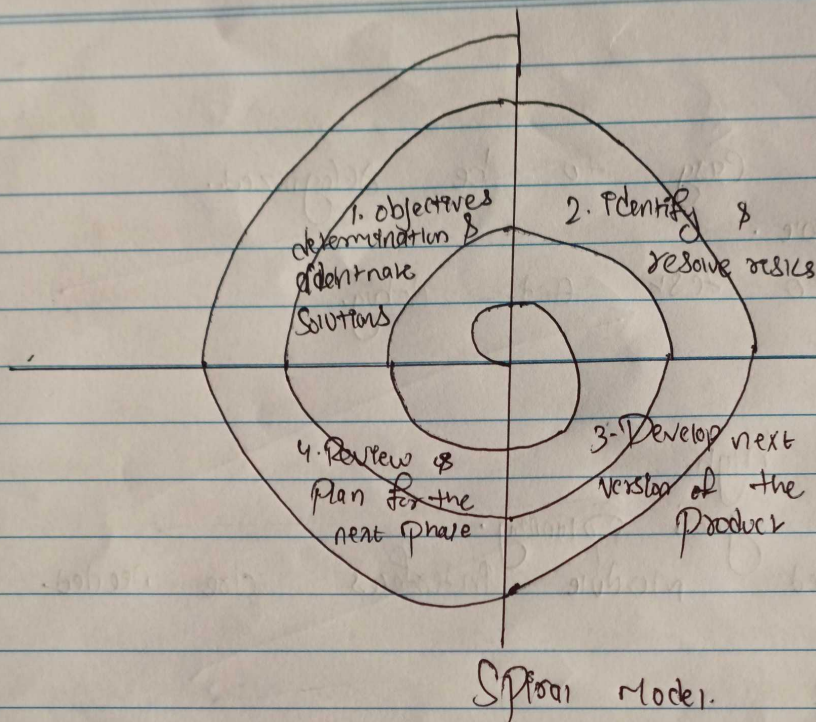 1. objectives
determination &
identnate
Solutions
2. Identify &
resolve resks
3- Develop next
version of the
Product
4. Review &
Plan for the
next Phase
Spiral Model.